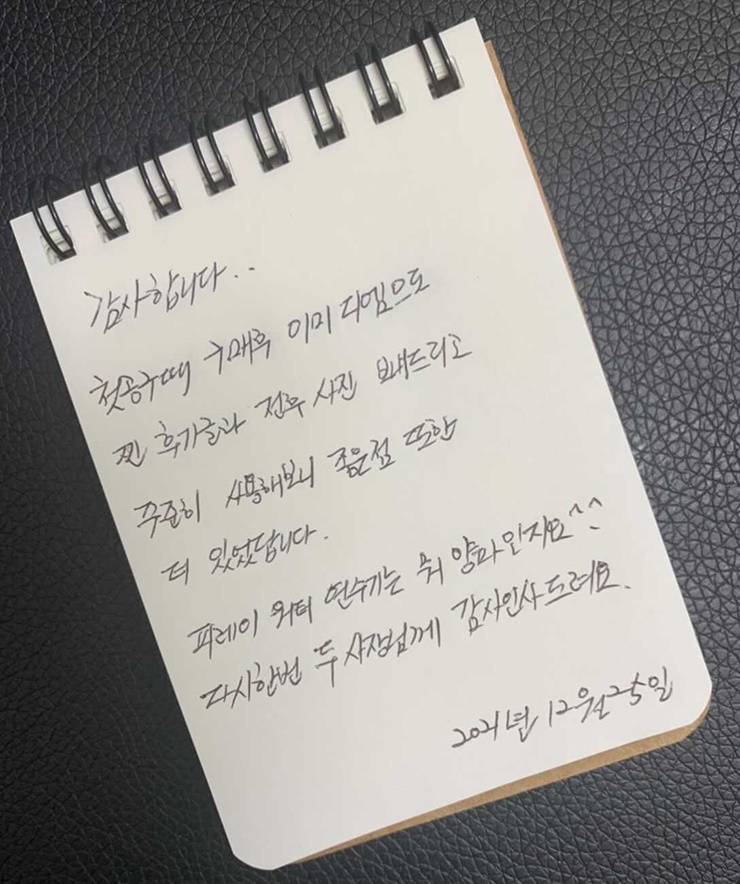 감사합니다..
첫공구때 구매후 이미 디엠으로
찐 후기글과 전후 사진 보내드리고
꾸준히 사용해보니 좋은점 또한
더 있었답니다.
파레이 워터 연수기는 뭐 말하지요^^
다시한번 두 사장님께 감사인사드려요.
2021년 12월25일